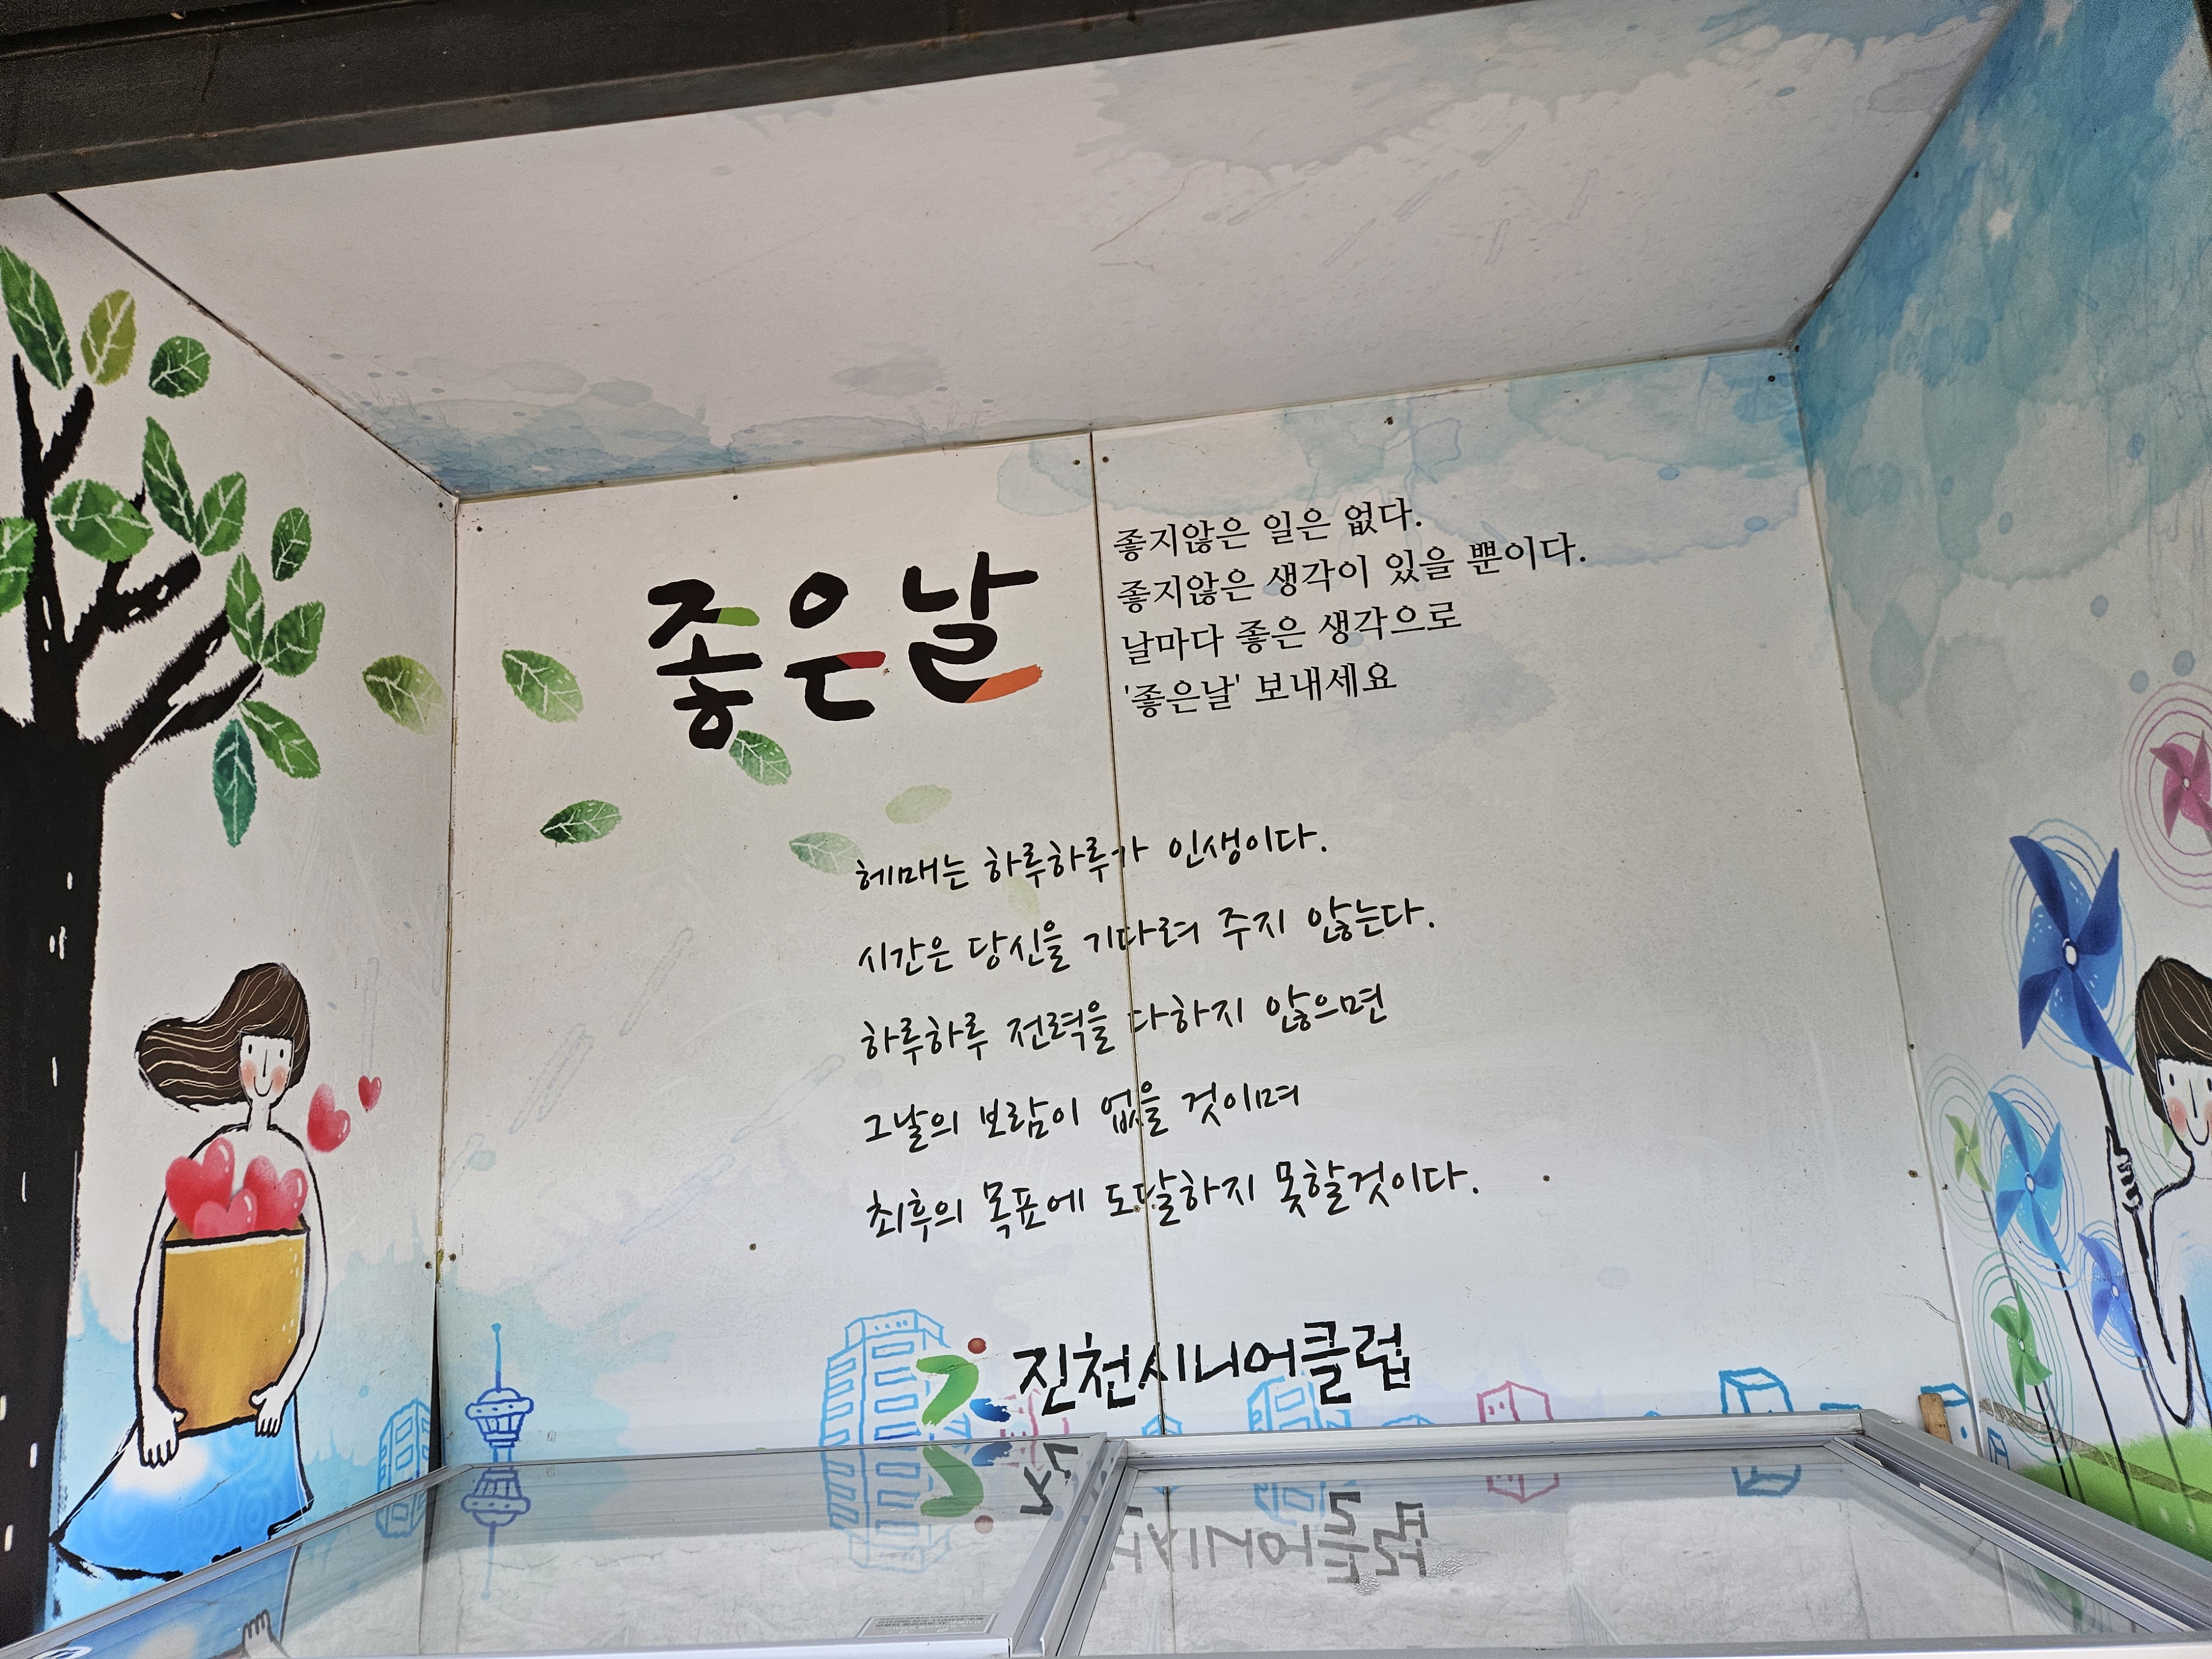 좋은날
좋지않은 일은 없다.
좋지않은 생각이 있을 뿐이다.
날마다 좋은 생각으로
'좋은날' 보내세요
헤매는 하루하루가 인생이다.
시간은 당신을 기다려 주지 않는다.
하루하루 전력을 다하지 않으면
그날의 보람이 없을 것이며
최후의 목표에 도달하지 못할것이다.
진천시니어클럽